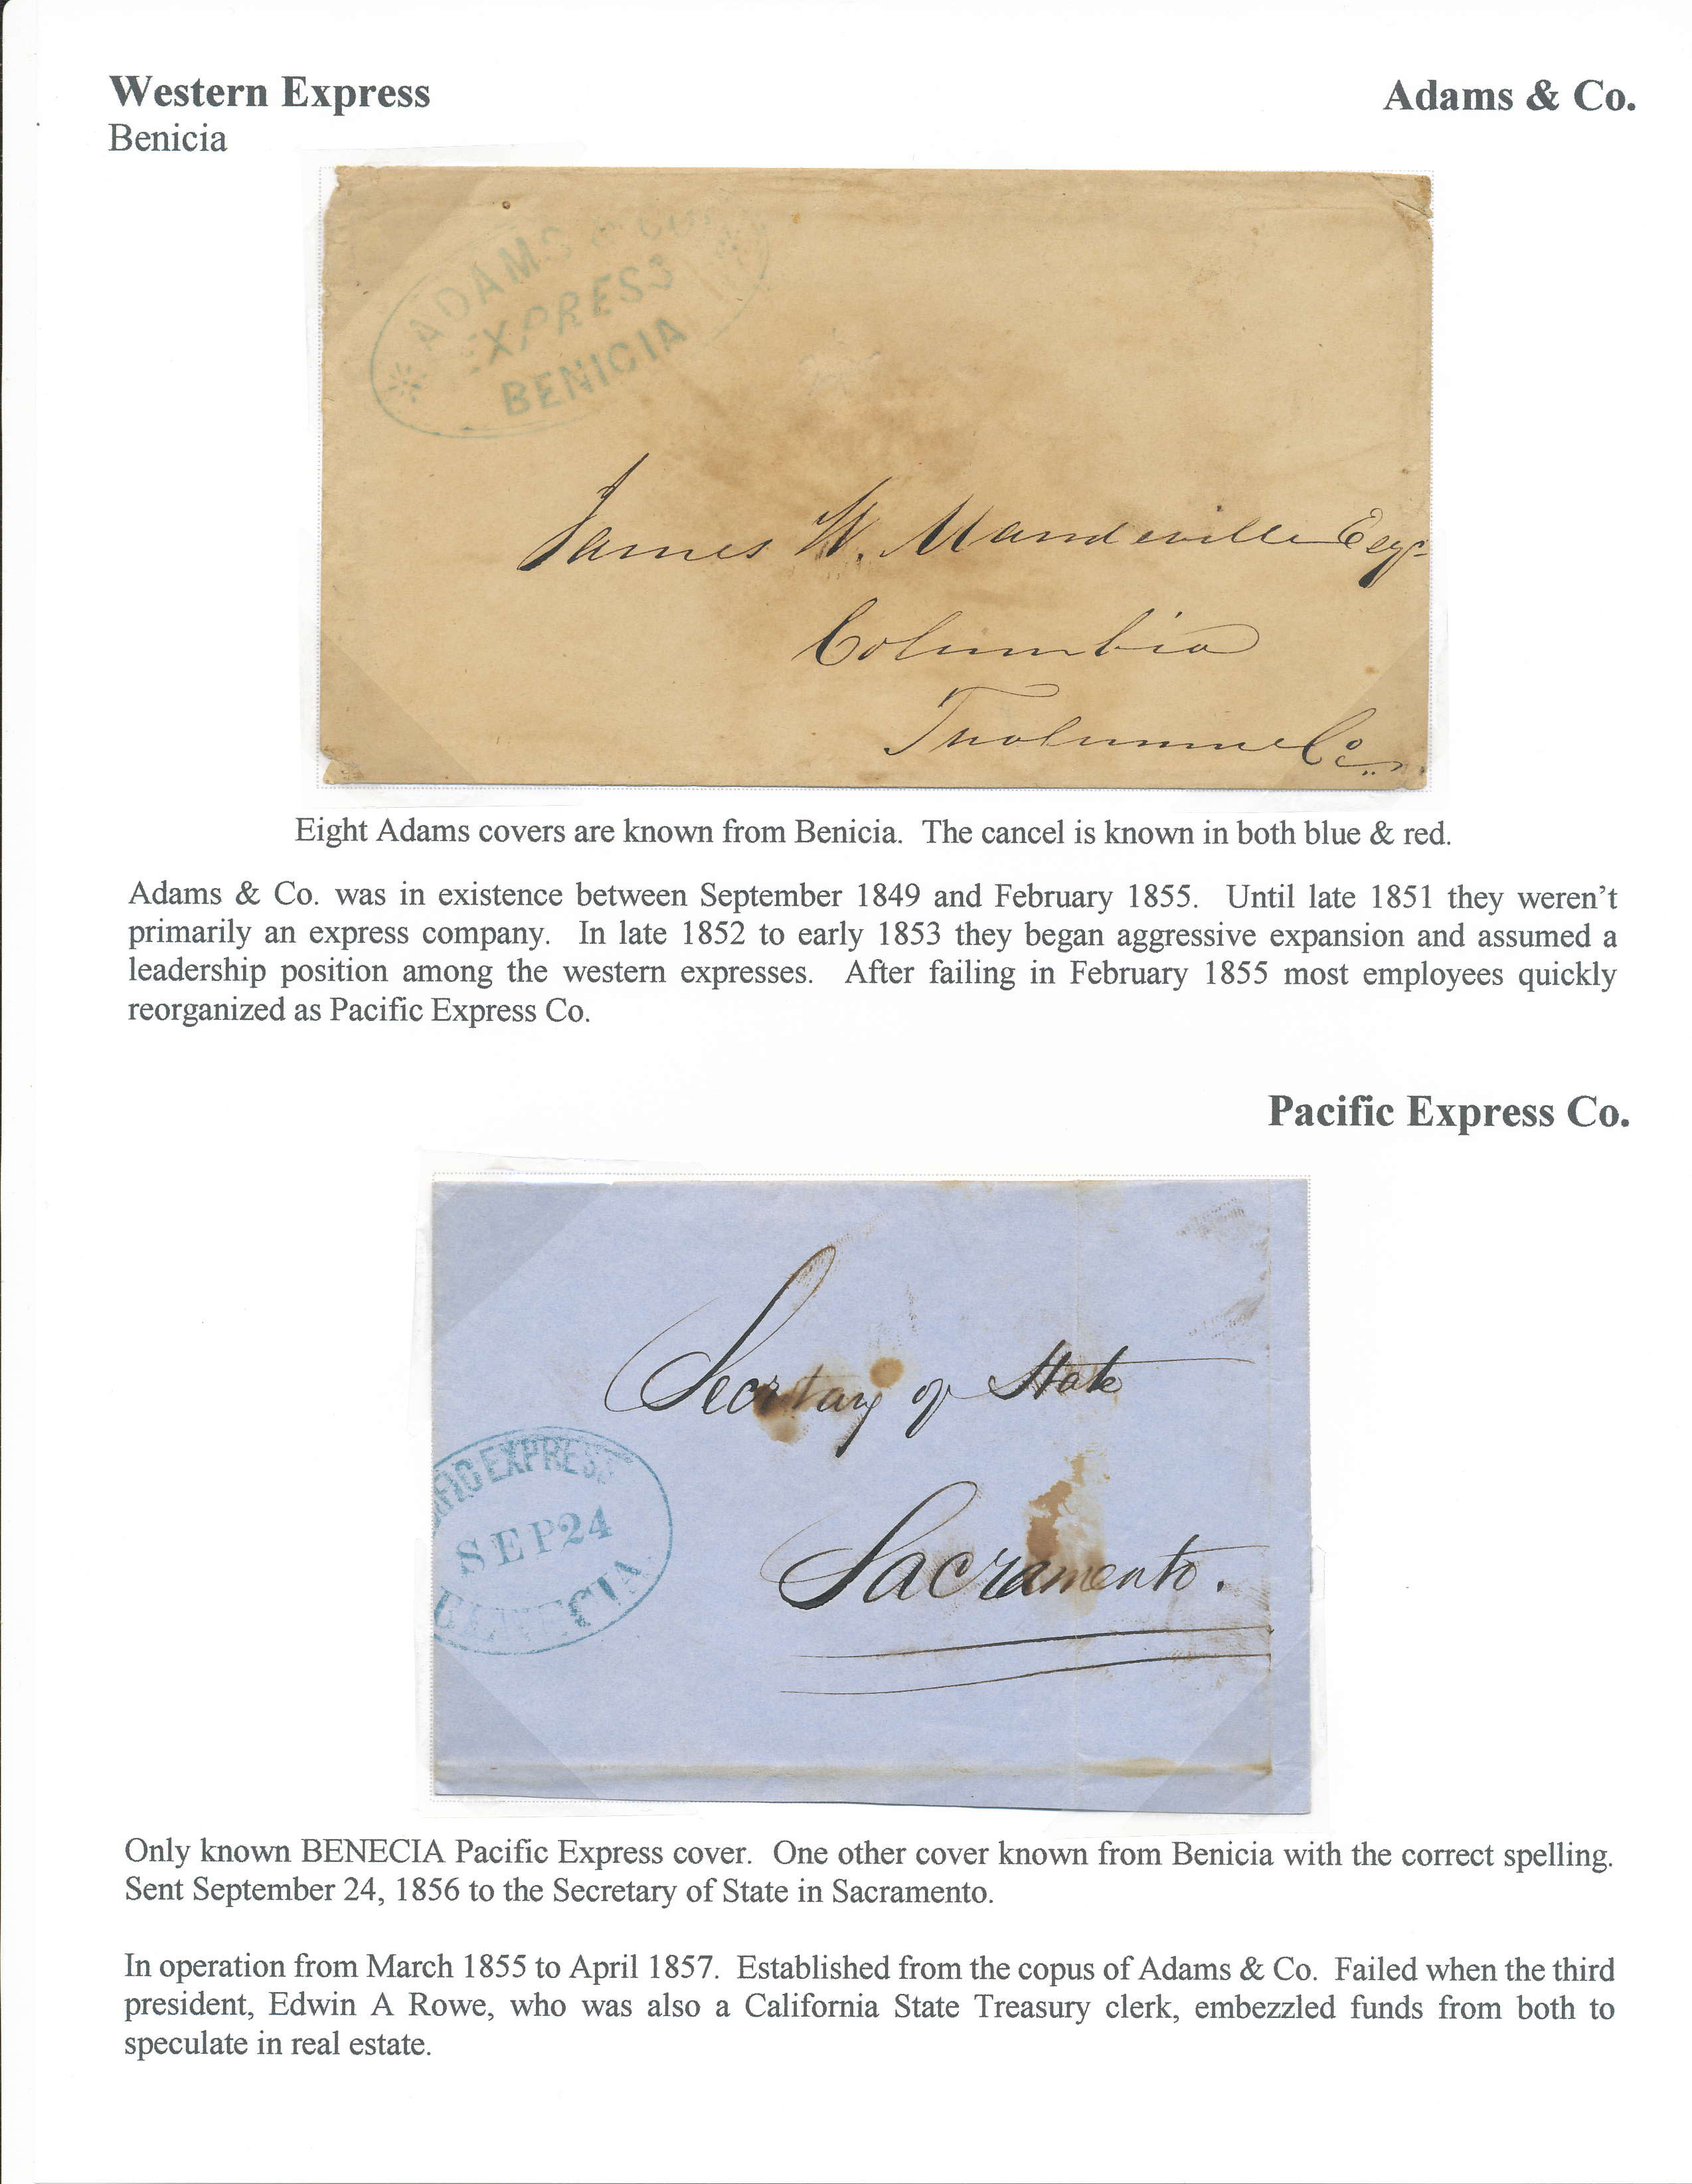 Western Express
Adams & Co.
Benicia
ADAMS & CO.
EXPRESS
BENICIA
James W. Mandeville Esqr
Columbia
Tuolumne Co.
Eight Adams covers are known from Benicia. The cancel is known in both blue & red.
Adams & Co. was in existence between September 1849 and February 1855. Until late 1851 they weren't
primarily an express company. In late 1852 to early 1853 they began aggressive expansion and assumed a
leadership position among the western expresses. After failing in February 1855 most employees quickly
reorganized as Pacific Express Co.
Pacific Express Co.
Secretary of State
Sacramento.
IFIC EXPRESS
SEP24
BENECIA
Only known BENECIA Pacific Express cover. One other cover known from Benicia with the correct spelling.
Sent September 24, 1856 to the Secretary of State in Sacramento.
In operation from March 1855 to April 1857. Established from the copus of Adams & Co. Failed when the third
president, Edwin A Rowe, who was also a California State Treasury clerk, embezzled funds from both to
speculate in real estate.